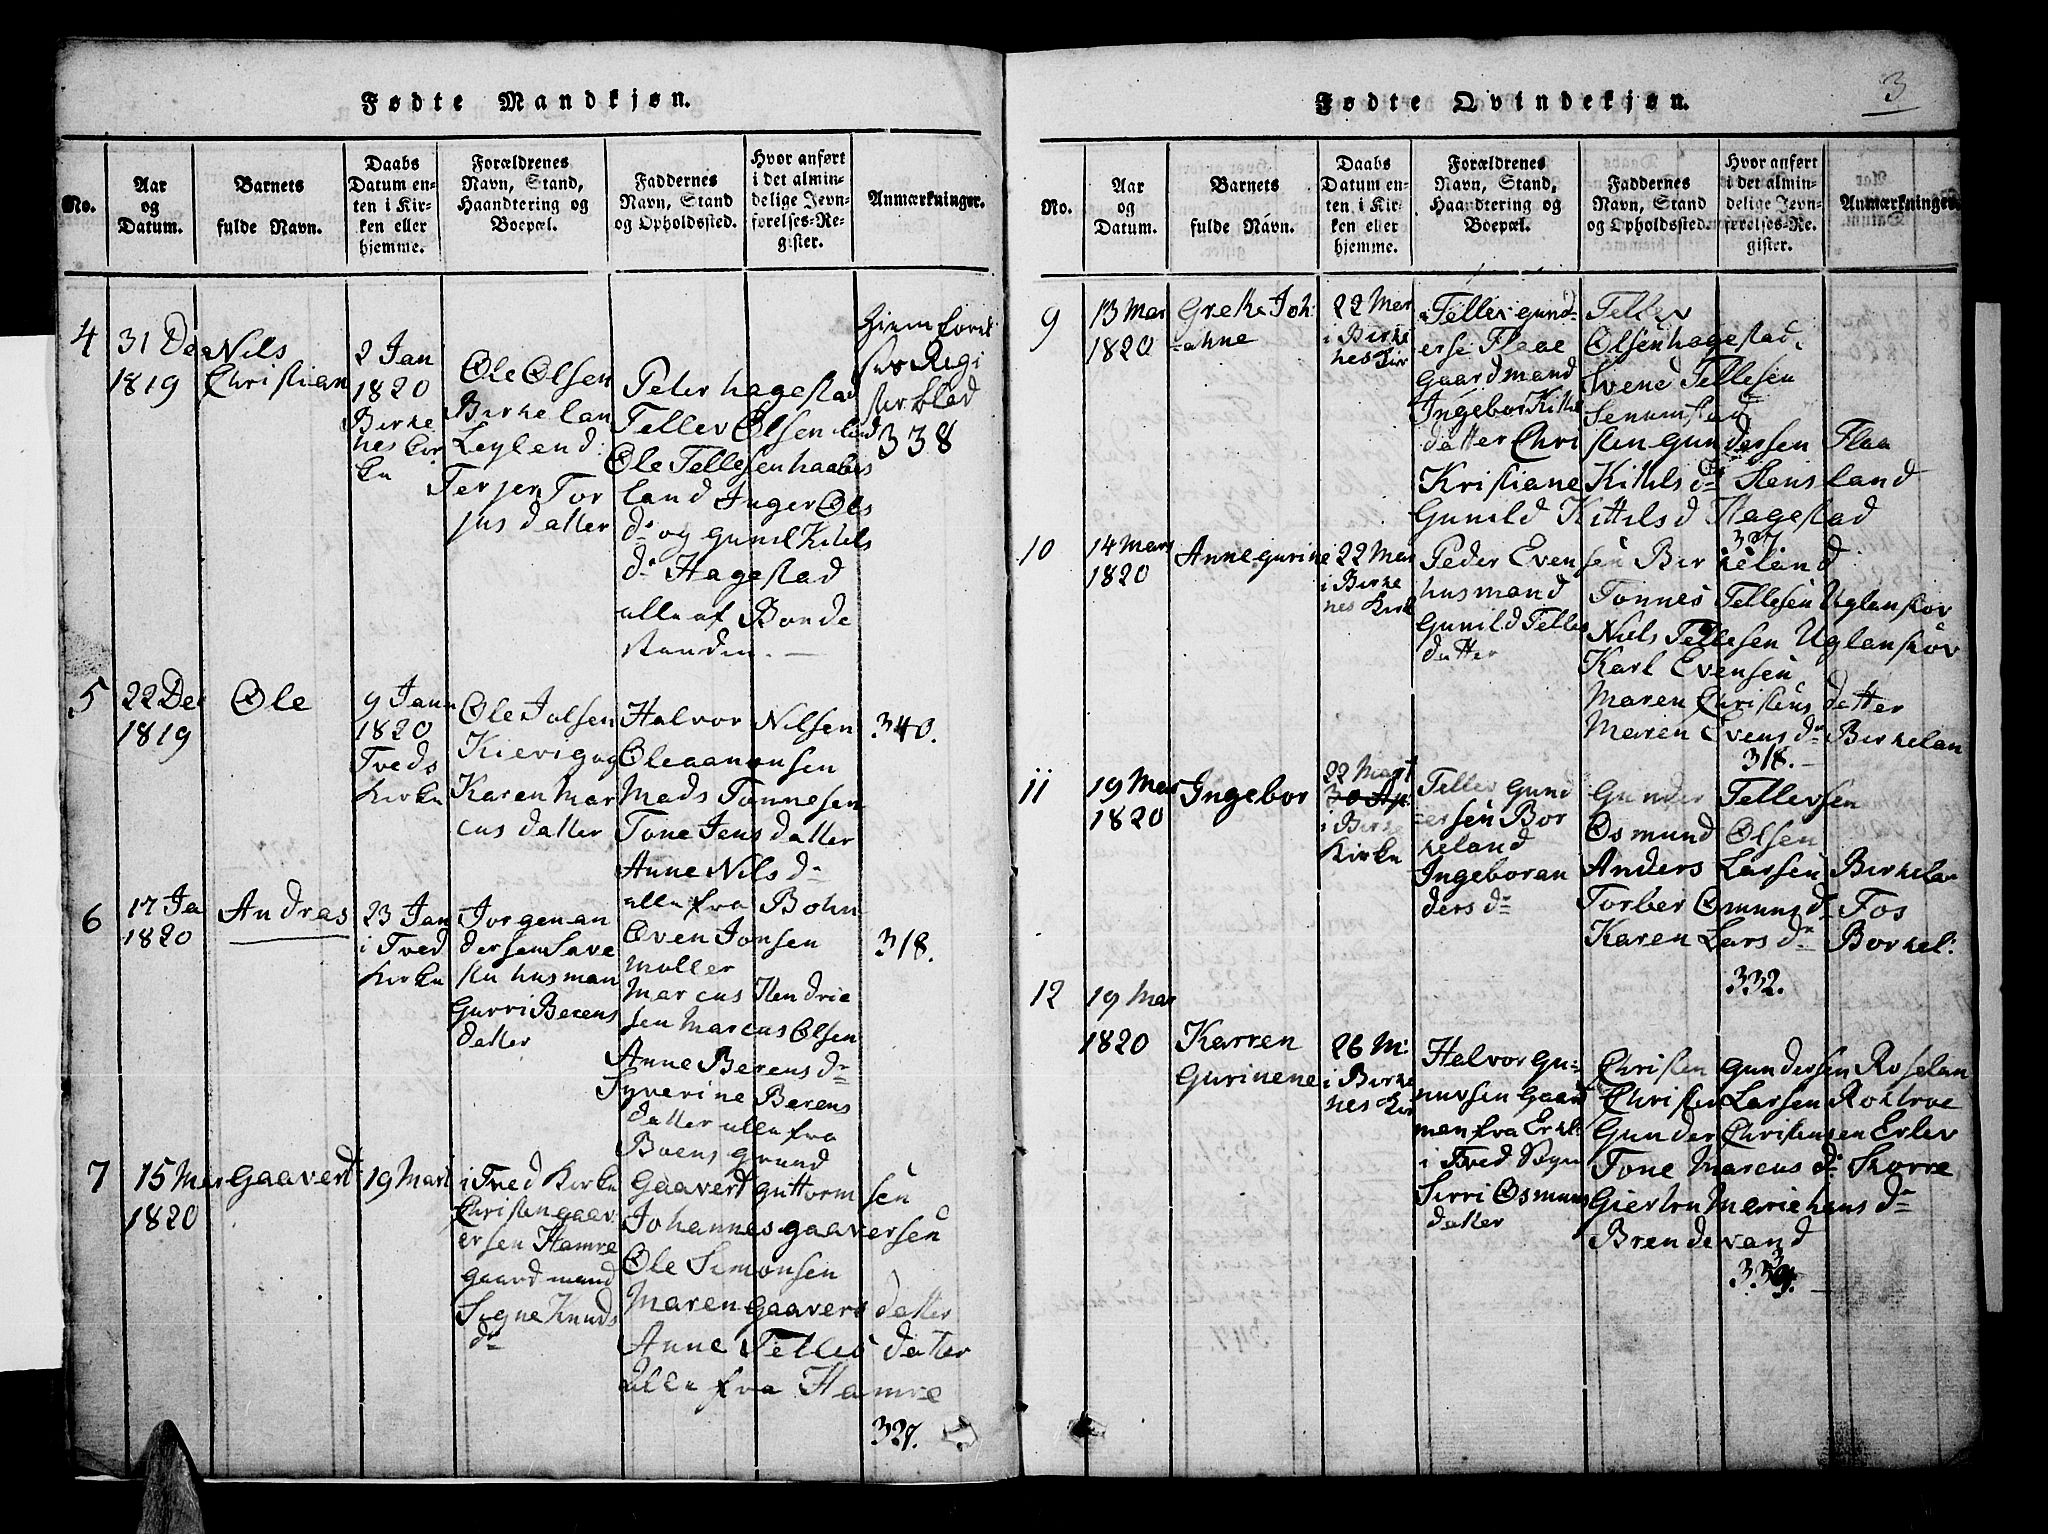 Fødte Mandkjøn.
No.
Aar
og
Datum.
Barnets
fulde Navn.
Daabs
Datum en-
ten i Kir-
ken eller
hjemme.
Forældrenes
Navn, Stand,
Haandtering og
Boepæl.
Faddernes
Navn, Stand
og Opholdssted.
Hvor anført
i det almin-
delige Jevn-
førelses-Re-
gister.
Anmærkninger.
4
31 De
1819
Nils
Christian
2 Jan
1820
Birke
nes Kir
ke
Ole Olsen
Birkelan
Leylend
Terjer Tor
jus datter
Peter hagestad
Tellev Olsen
Ole Tellesen haabes
land Inger Ols
dr og Gunil Kitels
dr Hagestad
alle af Bonde
standen. —
Regi
ster blad
338
5
22 De
1819
Ole
9 Jan
1820
Tveds
Kirke
Ole Jolsen
Kievig og
Karen Mar
cus datter
Halvor Nilsen
Ole aanonsen
Mads Tonnesen
Tone Jens datter
Anne Nils dr
alle fra Bohn
340.
6
17 Ja
1820
Andras
23 Jan
i Tved
Kirke
Jorgen an
dersen Save
sta husman
Gurri Berens
datter
Oven Jonsen
moller
Marcus Hendrie
sen Marcus Olsen
Anne Berens dr
Syverine Berens
datter alle fra
Boens grund
318.
7
15 Mar
1820
Gaavert
19 Mart
i Tved Kirke
Christen gaav
ersen Hamre
gaardmand
Signe Knuds
dr
Gaavert Guttorm sen
Johannes gaaversen
Ole Simonsen
Maren Gaavers datter
Anne Telles datter
alle fra Hamre
327.
3
Fødte Qvindekjøn.
No.
Aar
og
Datum.
Barnets
fulde Navn.
Daabs
Datum en-
ten i Kir-
ken eller
hjemme.
Forældrenes
Navn, Stand,
Haandtering og
Boepæl.
Faddernes
Navn, Stand
og Opholdssted.
Hvor anført
i det almin-
delige Jevn-
førelses-Re-
gister.
Anmærkninger.
9
13 Mar
1820
Grethe Joh
ahne
22 Mar
i Birke
nes Kir
Tellev gund
erse Flaae
Gaardmand
Ingebor Kittel
datter
Tellev
Olsen hagestad
Svene Tellesen
Senumstad
Christen Gundersen Flaa
Kristiane Kittels dr Stensland
Gunild Kittilsd Hagestad
327
10
14 Mars
1820
Anne gurine
22 Mar
i Birke
nes Kirk
Peder Evensen Birkeland
husmand
Gunild Telles
datter
Tonnes Tellesen Uglanskov
Niels Tellesen Uglanskov
Karl Evensen
Maren Christens datter
Maren Evens dr Birkelan
318. —
11
19 Mar
1820
Ingebor
22 Mart
i Birke
Kirke
Tellev Gund
ersen Bor
keland
Ingebor an
ders dr
Gunder Tellevsen
Osmund Olsen
Anders Larsen Birkelan
Torber Omuns dr Fos
Karen Lars dr Borkel:
332.
12
19 Mar
1820
Karren
Gurinene
26 M:
i Birke
nes Kir
Halvor Gu-
nursen Gaard
man fra Erkl:
i Tved Sogn
Sirri Osmuns
datter
Christen Gundersen Roselan
Christen Larsen Roktroe
Gunder Christensen Erlev
Tone Marcus dr Skorre
Giertru Marie hans dr
Brendevand